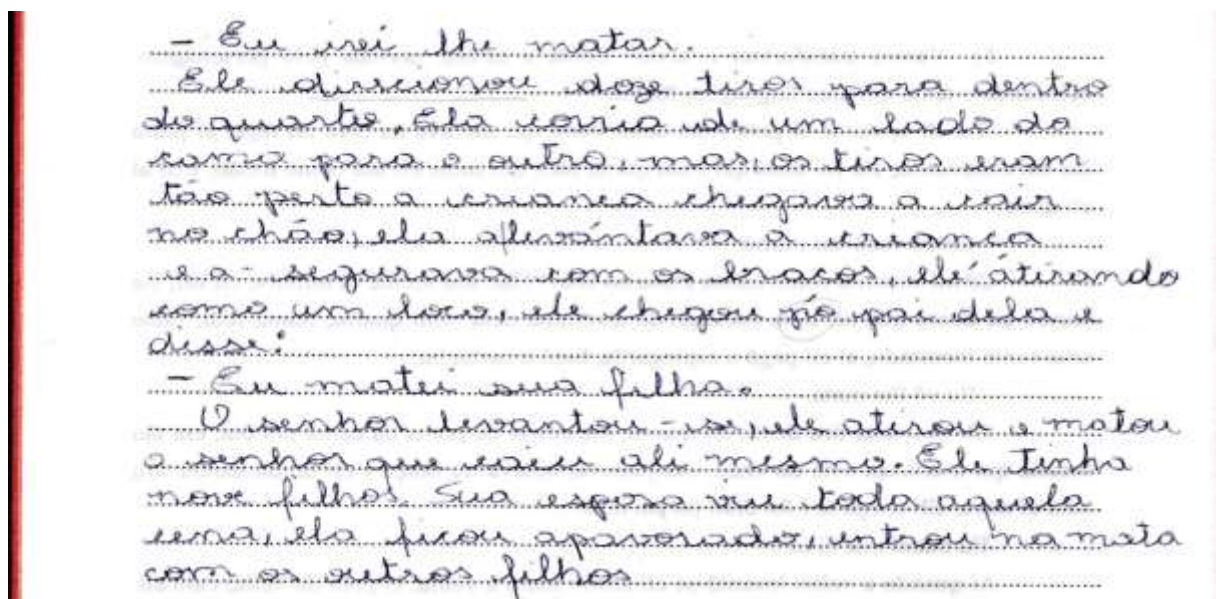 - Eu irei lhe matar.
Ele direcionou doze tiros para dentro
do quarto, Ela corria de um lado do
cama para o outro, mas, os tiros eram
tão perto a crianca chegava a cair
no chão, ela alevantava a crianca
e a - segurava com os bracos, ele atirando
como um loco, ele chegou pó pai dela e
disse:
- Eu matei sua filha.
O senhor levantou-se, ele atirou e matou
o senhor que caiu ali mesmo. Ele tinha
nove filhos. Sua esposa viu toda aquela
cena, ela ficou apavorada, entrou na mata
com os outros filhos